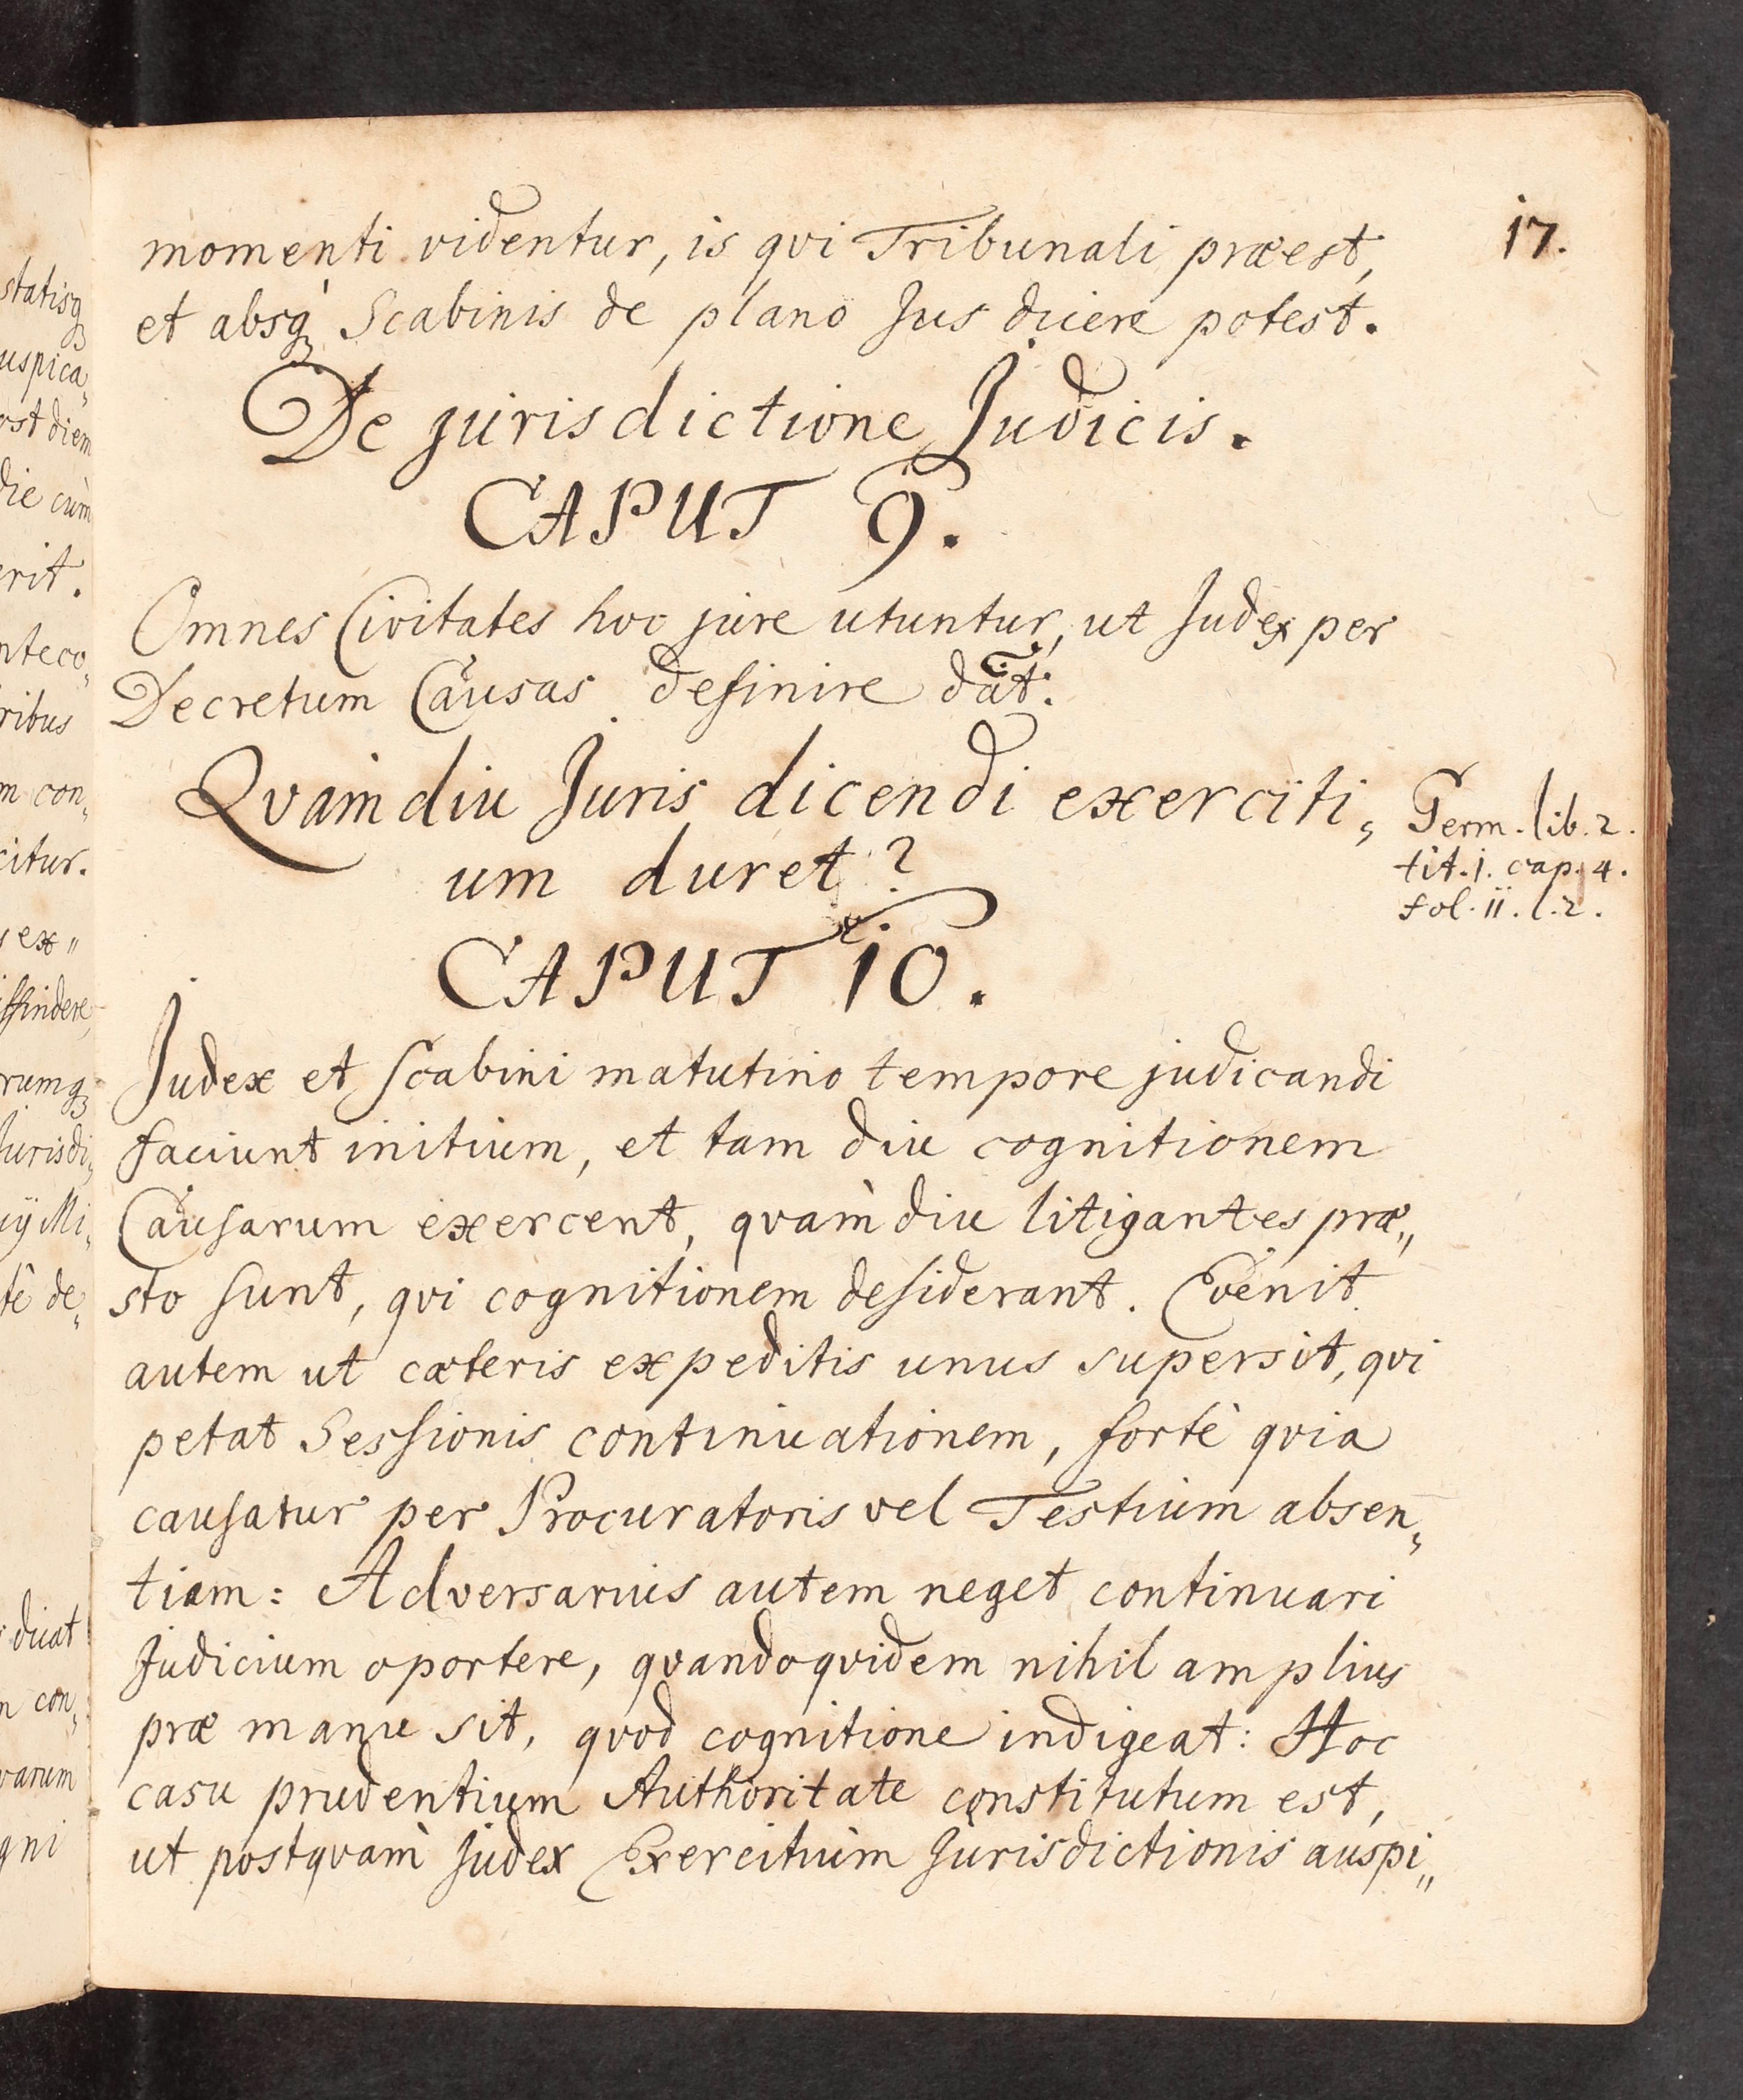 17.
momenti videntur, is qvi Tribunali præest,
et absq́ꝫ Scabinis de plano Jus dicere potest.
De jurisdictione Judicis.
CAPUT 9.
Omnes Civitates hoc jure utuntur, ut Judex per
Decretum Causas definire
Qvàmdiu Juris dicendi exerciti„
um duret?
Germ. lib. 2.
tit. 1. cap. 4.
fol. 11. l. 2.
CAPUT 10.
Judex et Scabini matutino tempore judicandi
faciunt initium, et tam diu cognitionem
Causarum exercent, qvam̀diu litigantes præ„
sto sunt, qvi cognitionem desiderant. Evenit
autem ut cæteris expeditis unus supersit, qvi
petat Sessionis continuationem, fortè qvia
causatur per Procuratoris vel Testium absen„
tiam: Adversarius autem neget continuari
Judicium oportere, qvandoqvidem nihil amplius
præ manu sit, qvod cognitione indigeat: Hoc
casu prudentium Authoritate constitutum est,
ut postqvam̀ Judex Exercitium Jurisdictionis auspi„